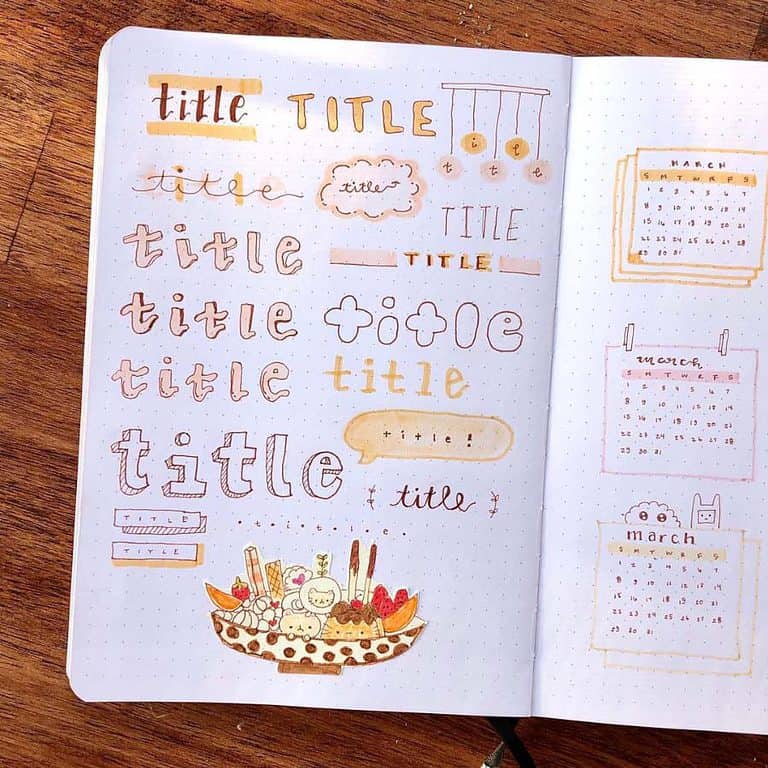 title
TITLE
t i t l e
title
title
TITLE
title
TITLE
title
title
title
title
title!
title
title
TITLE
t·i·t·l·e
TITLE
MARCH
S M T W R F S
1 2 3 4 5 6 7
8 9 10 11 12 13 14
15 16 17 18 19 20 21
22 23 24 25 26 27 28
29 30 31
march
S M T W R F S
1 2 3 4 5 6 7
8 9 10 11 12 13 14
15 16 17 18 19 20 21
22 23 24 25 26 27 28
29 30 31
march
S M T W R F S
1 2 3 4 5 6 7
8 9 10 11 12 13 14
15 16 17 18 19 20 21
22 23 24 25 26 27 28
29 30 31